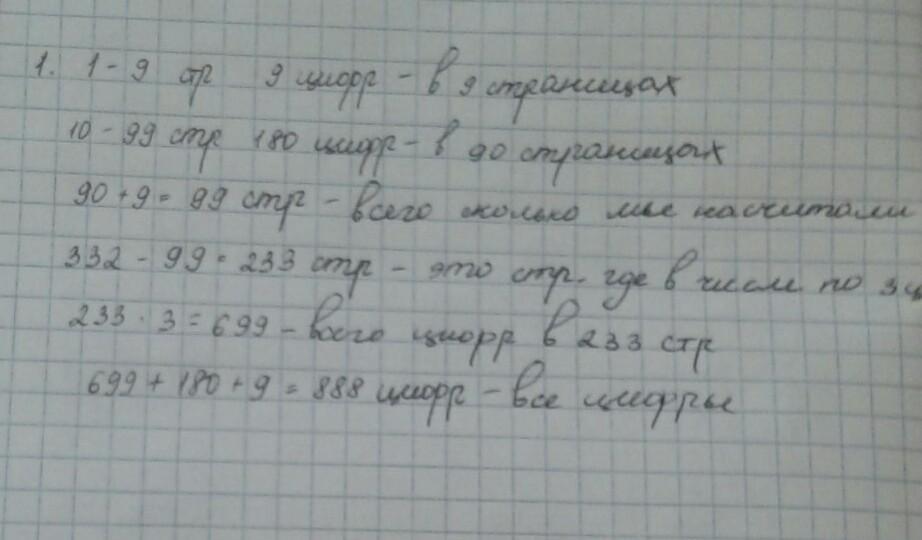 1. 1 - 9 стр 9 цифр - в 9 страницах
10 - 99 стр 180 цифр - в 90 страницах
90 + 9 = 99 стр - всего сколько мы насчитали
332 - 99 = 233 стр - это стр. где в числе по 3 ц
233 · 3 = 699 - всего цифр в 233 стр
699 + 180 + 9 = 888 цифр - все цифры